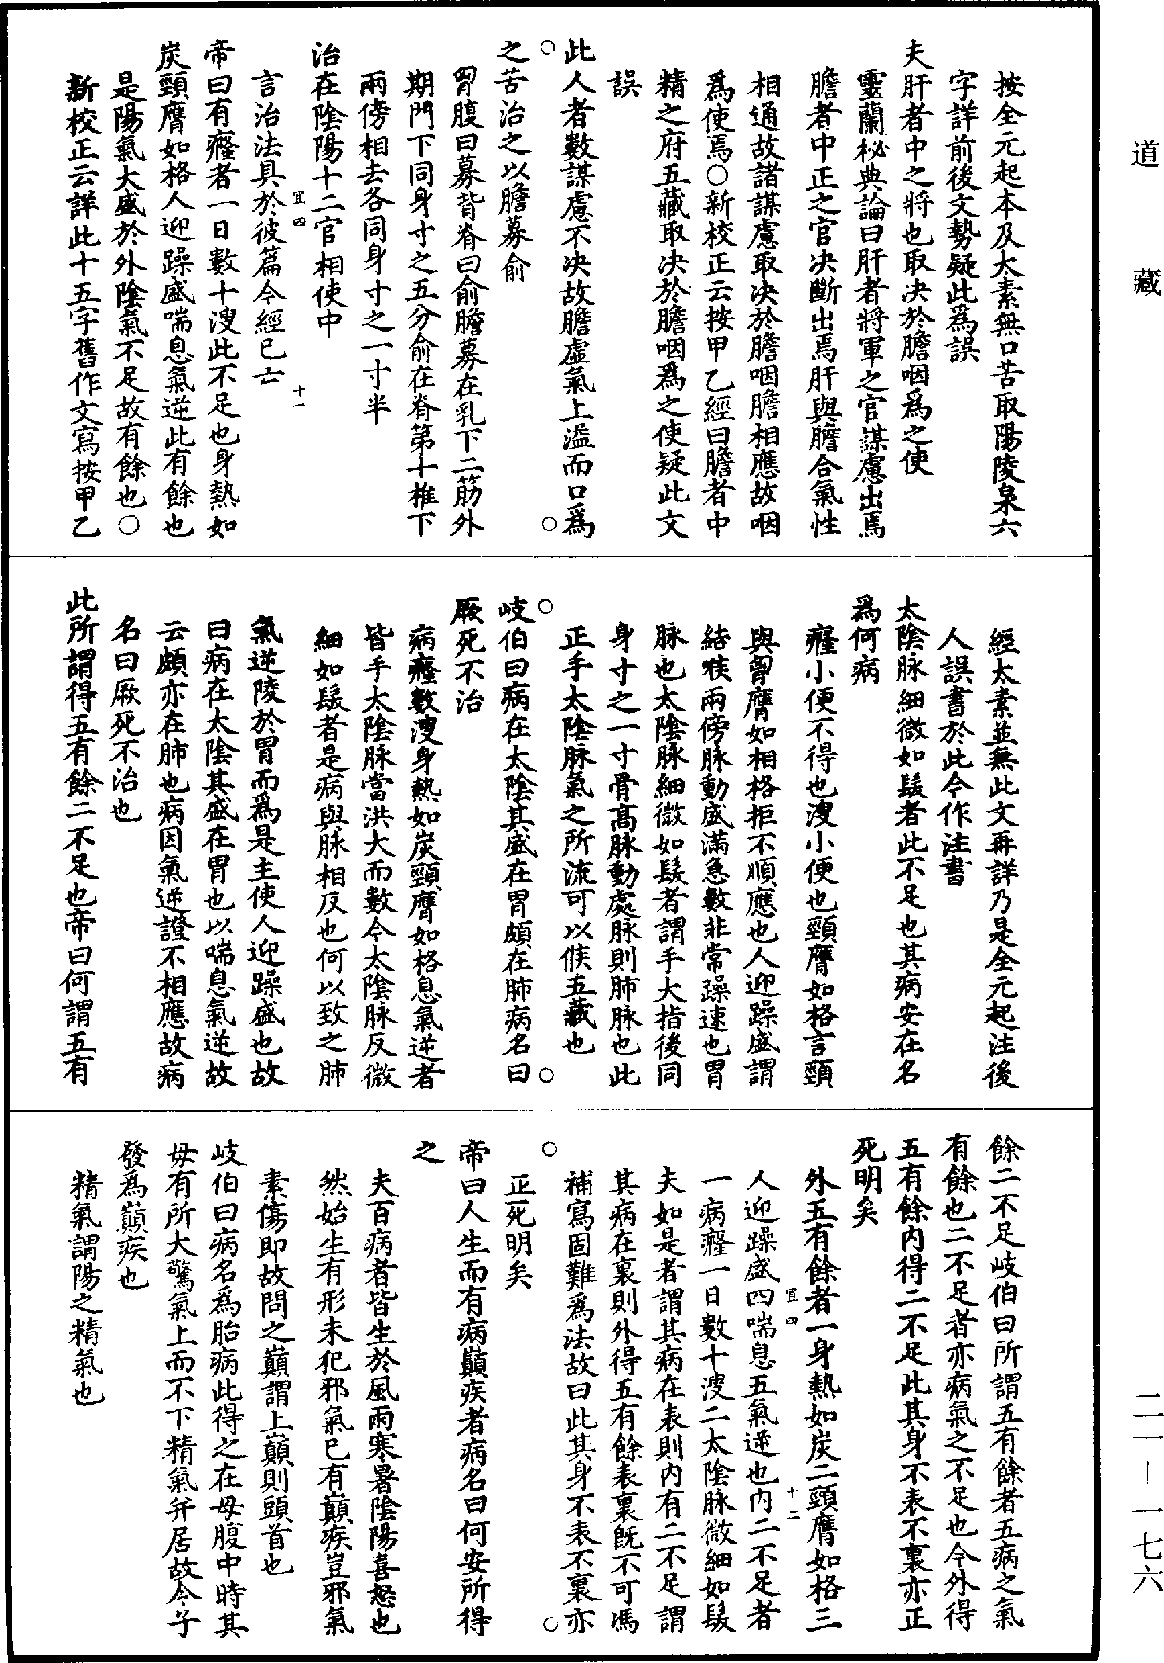 道藏
按全元起本及太素無口苦取陽陵泉六
字詳前後文勢疑此為誤
夫肝者中之將也取决於膽咽為之使
靈蘭秘典論曰肝者將軍之官謀慮出焉
膽者中正之官决斷出焉肝與膽合氣性
相通故諸謀慮取决於膽咽膽相應故咽
為使焉○新校正云按甲乙經曰膽者中
精之府五藏取决於膽咽為之使疑此文
誤
此人者數謀慮不决故膽虛氣上溢而口為
○○
之苦治之以膽募俞
胷腹曰募背脊曰俞膽募在乳下二筋外
期門下同身寸之五分俞在脊第十椎下
兩傍相去各同身寸之一寸半
治在陰陽十二官相使中
言治法具於彼篇今經已亡
宜四 十一
帝曰有癃者一日數十溲此不足也身熱如
炭頸膺如格人迎躁盛喘息氣逆此有餘也
是陽氣大盛於外陰氣不足故有餘也○
新校正云詳此十五字舊作文寫按甲乙
經太素並無此文再詳乃是全元起注後
人誤書於此今作注書
太陰脉細微如髮者此不足也其病安在名
為何病
癃小便不得也溲小便也頸膺如格言頸
與胷膺如相格拒不順應也人迎躁盛謂
結喉兩傍脉動盛滿急數非常躁速也胃
脉也太陰脉細微如髮者謂手大指後同
身寸之一寸骨高脉動處脉則肺脉也此
正手太陰脉氣之所流可以候五藏也
○○
岐伯曰病在太陰其盛在胃頗在肺病名曰
厥死不治
病癃數溲身熱如炭頸膺如格息氣逆者
皆手太陰脉當洪大而數今太陰脉反微
細如髮者是病與脉相反也何以致之肺
氣逆陵於胃而為是主使人迎躁盛也故
曰病在太陰其盛在胃也以喘息氣逆故
云頗亦在肺也病因氣逆證不相應故病
名曰厥死不治也
此所謂得五有餘二不足也帝曰何謂五有
餘二不足岐伯曰所謂五有餘者五病之氣
有餘也二不足者亦病氣之不足也今外得
五有餘内得二不足此其身不表不裏亦正
死明矣
外五有餘者一身熱如炭二頸膺如格三
宜四 十二
人迎躁盛四喘息五氣逆也内二不足者
一病癃一日數十溲二太陰脉微細如髮
夫如是者謂其病在表則内有二不足謂
其病在裏則外得五有餘表裏既不可馮
補寫固難為法故曰此其身不表不裏亦
○○
正死明矣
帝曰人生而有病巔疾者病名曰何安所得
之
夫百病者皆生於風雨寒暑陰陽喜怒也
然始生有形未犯邪氣已有巔疾豈邪氣
素傷即故問之巔謂上巔則頭首也
岐伯曰病名為胎病此得之在母腹中時其
母有所大驚氣上而不下精氣并居故令子
發為巔疾也
精氣謂陽之精氣也
二一—一七六